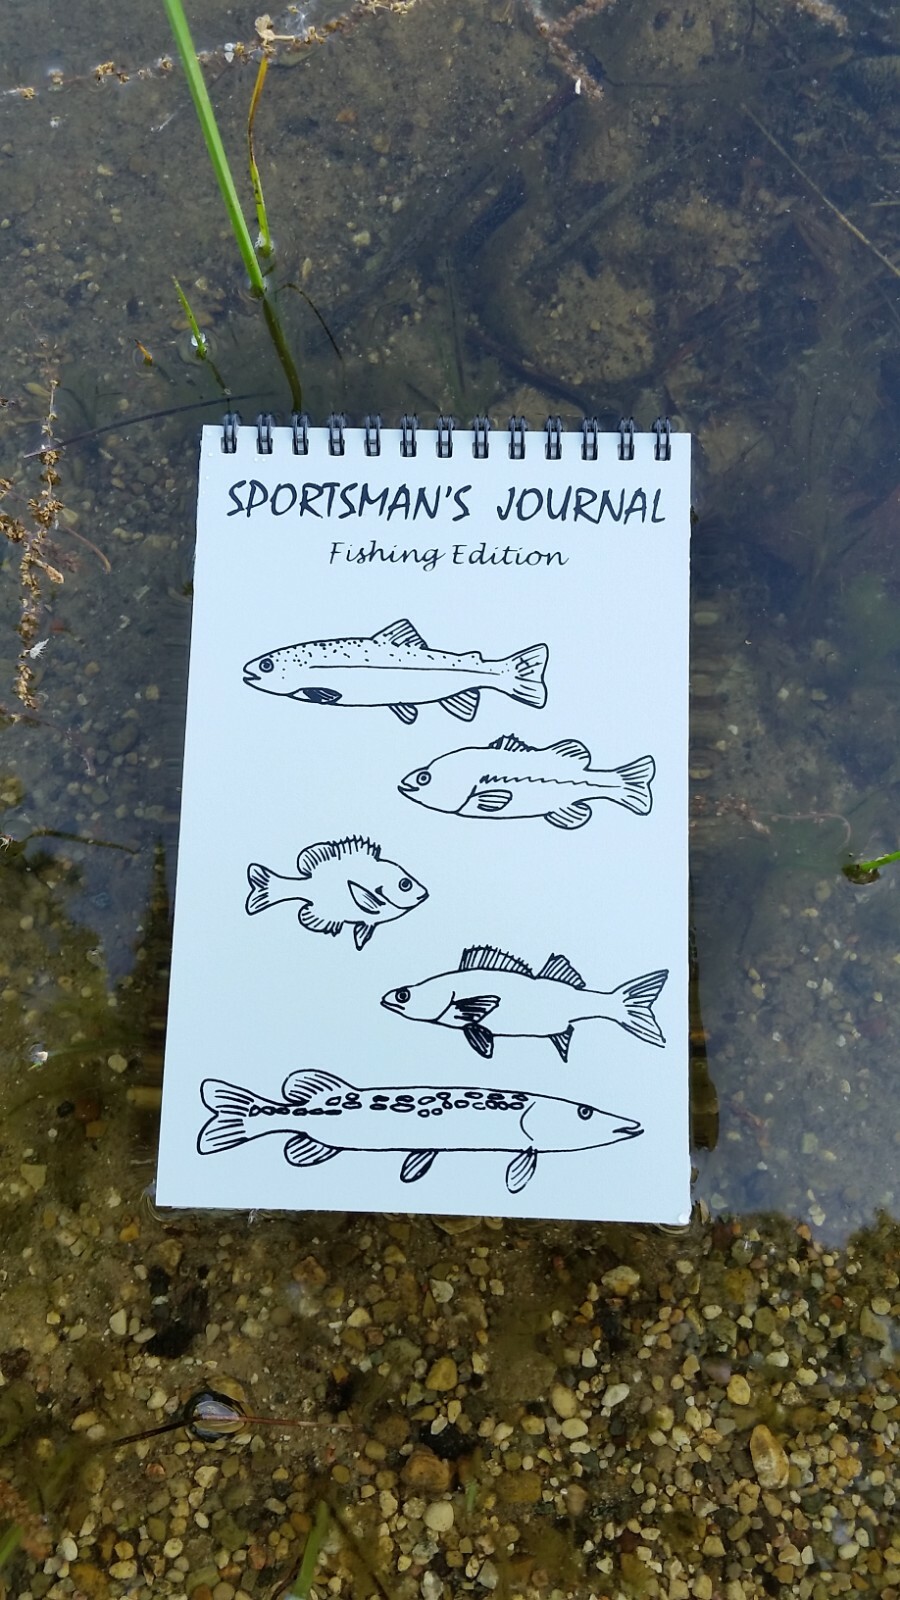 SPORTSMAN'S JOURNAL
Fishing Edition